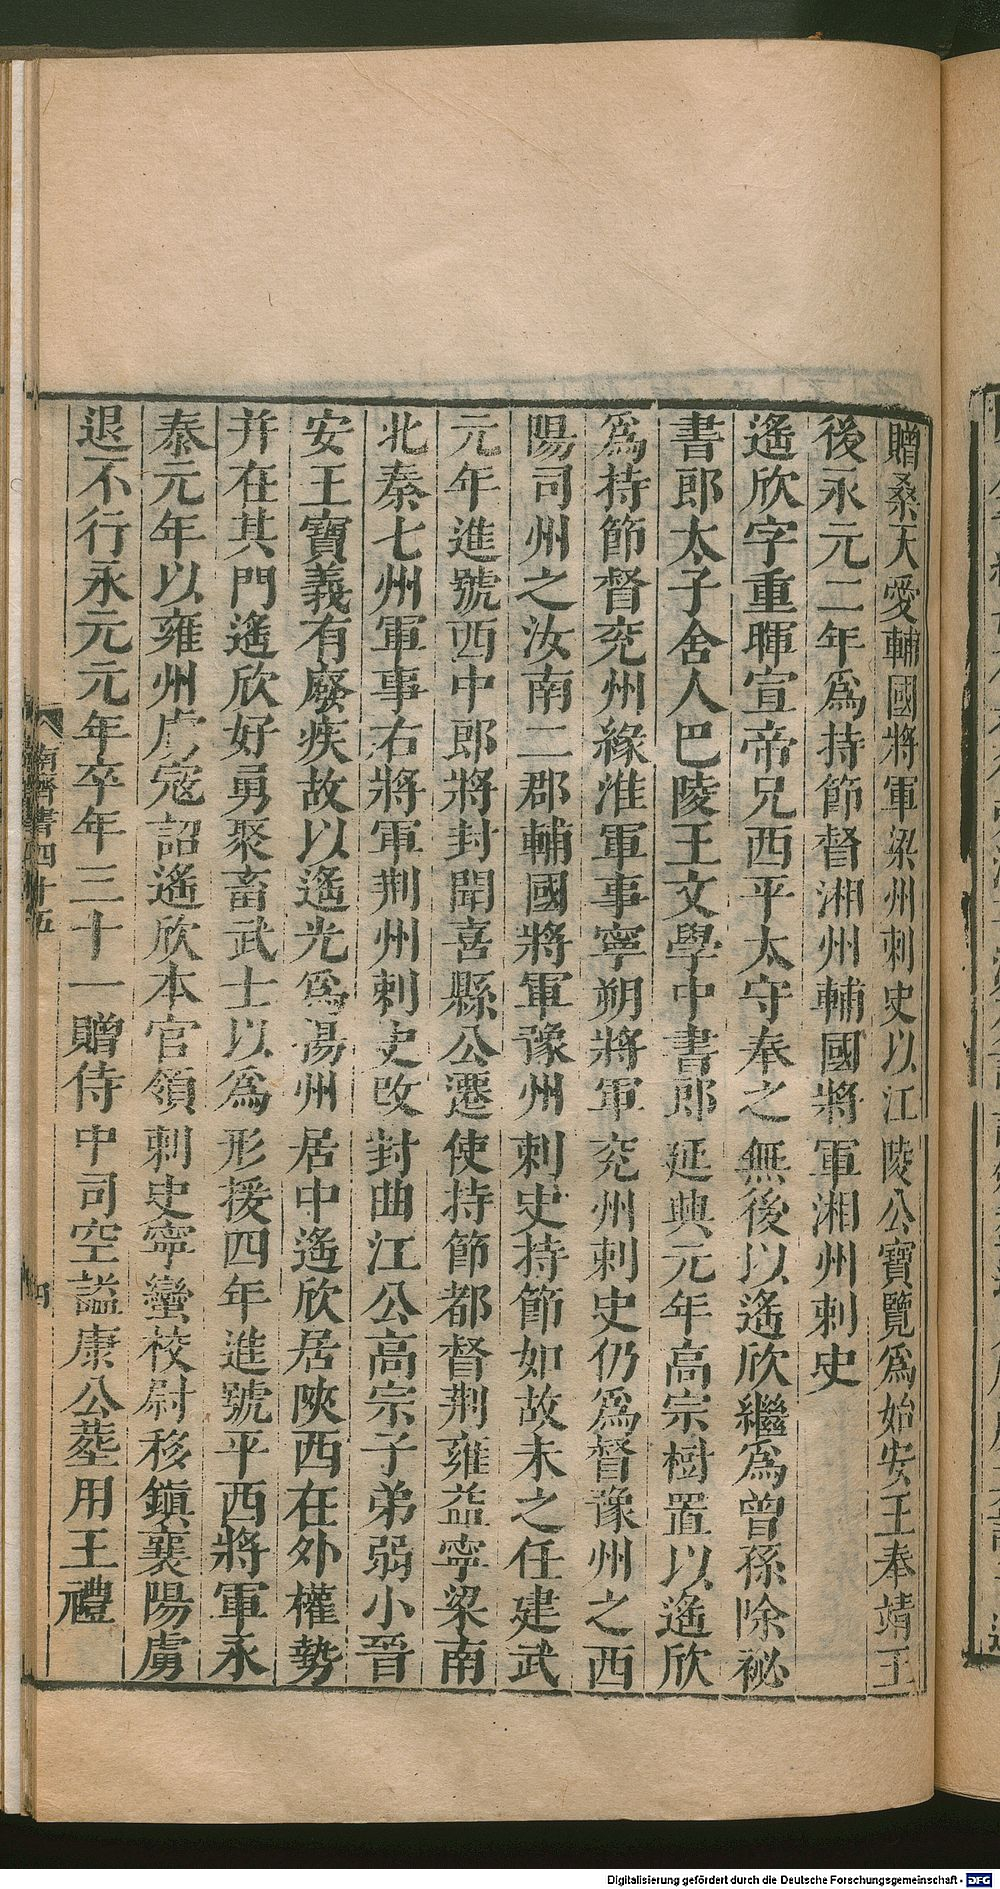 贈桑天愛輔國將軍梁州刺史以江陵公寶覽爲始安王奉靖王
後永元二年爲持節督湘州輔國將軍湘州刺史
遙欣字重暉宣帝兄西平太守奉之無後以遙欣繼爲曾孫除祕
書郎太子舍人巴陵王文學中書郎延興元年高宗樹置以遙欣
爲持節督兖州緣淮軍事寧朔將軍兖州刺史仍爲督豫州之西
陽司州之汝南二郡輔國將軍豫州刺史持節如故未之任建武
元年進號西中郎將封聞喜縣公遷使持節都督荆雍益寧梁南
北秦七州軍事右將軍荆州刺史改封曲江公高宗子弟弱小晉
安王寶義有廢疾故以遙光爲揚州居中遙欣居陜西在外權勢
并在其門遙欣好勇聚畜武士以爲形援四年進號平西將軍永
泰元年以雍州虜寇詔遙欣本官領刺史寧蠻校尉移鎮襄陽虜
退不行永元元年卒年三十一贈侍中司空諡康公葬用王禮
南齊書四十五
四
Digitalisierung gefördert durch die Deutsche Forschungsgemeinschaft - DFG